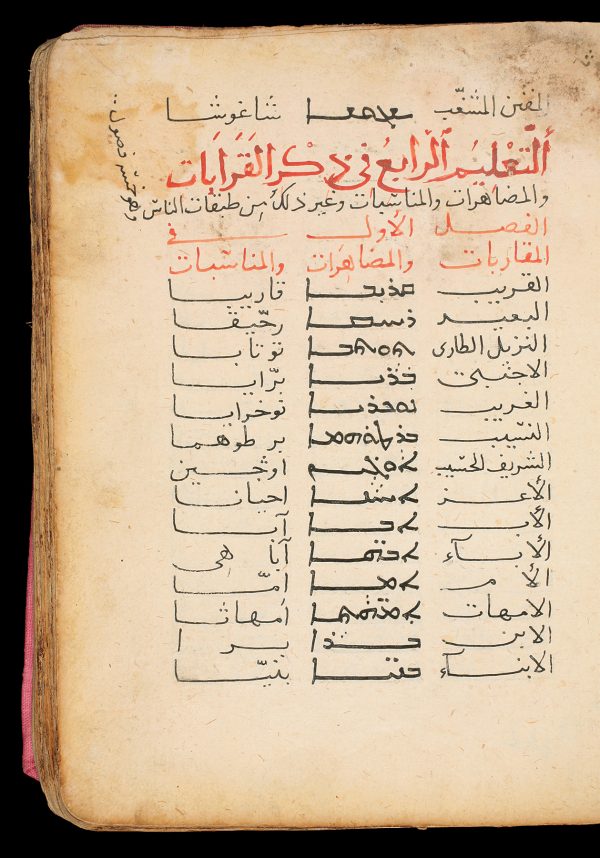 المفتن المشغّب ܫܓܘܫܐ شاغوشا
ألتعليم ألرابع في ذكر القرابات
والمضاهرات والمناسبات وغير ذلك من طبقات الناس
وهو خمسة فصول
الفصل الأول في
المقاربات والمضاهرات والمناسبات
القريب ܩܪܝܒܐ قاريبا
البعيد ܪܚܝܩܐ رحّيقا
النزيل الطارى ܬܘܬܒܐ توتابا
الاجنبي ܒܪܝܐ برّايا
الغريب ܢܘܟܪܝܐ نوخرايا
النسيب ܒܪܛܘܗܡܐ بر طوهما
الشريف الحسيب ܐܘܓܝܢ اوجين
الأعز ܐܚܝܢܐ احيانا
الأب ܐܒܐ آبا
الأبآء ܐܒ̈ܗܐ آباهي
الأم ܐܡܐ امّا
الامهات ܐܡ̈ܗܬܐ امهاثا
الابن ܒܪܐ برا
الابنآء ܒܢ̈ܝܐ بنيّا